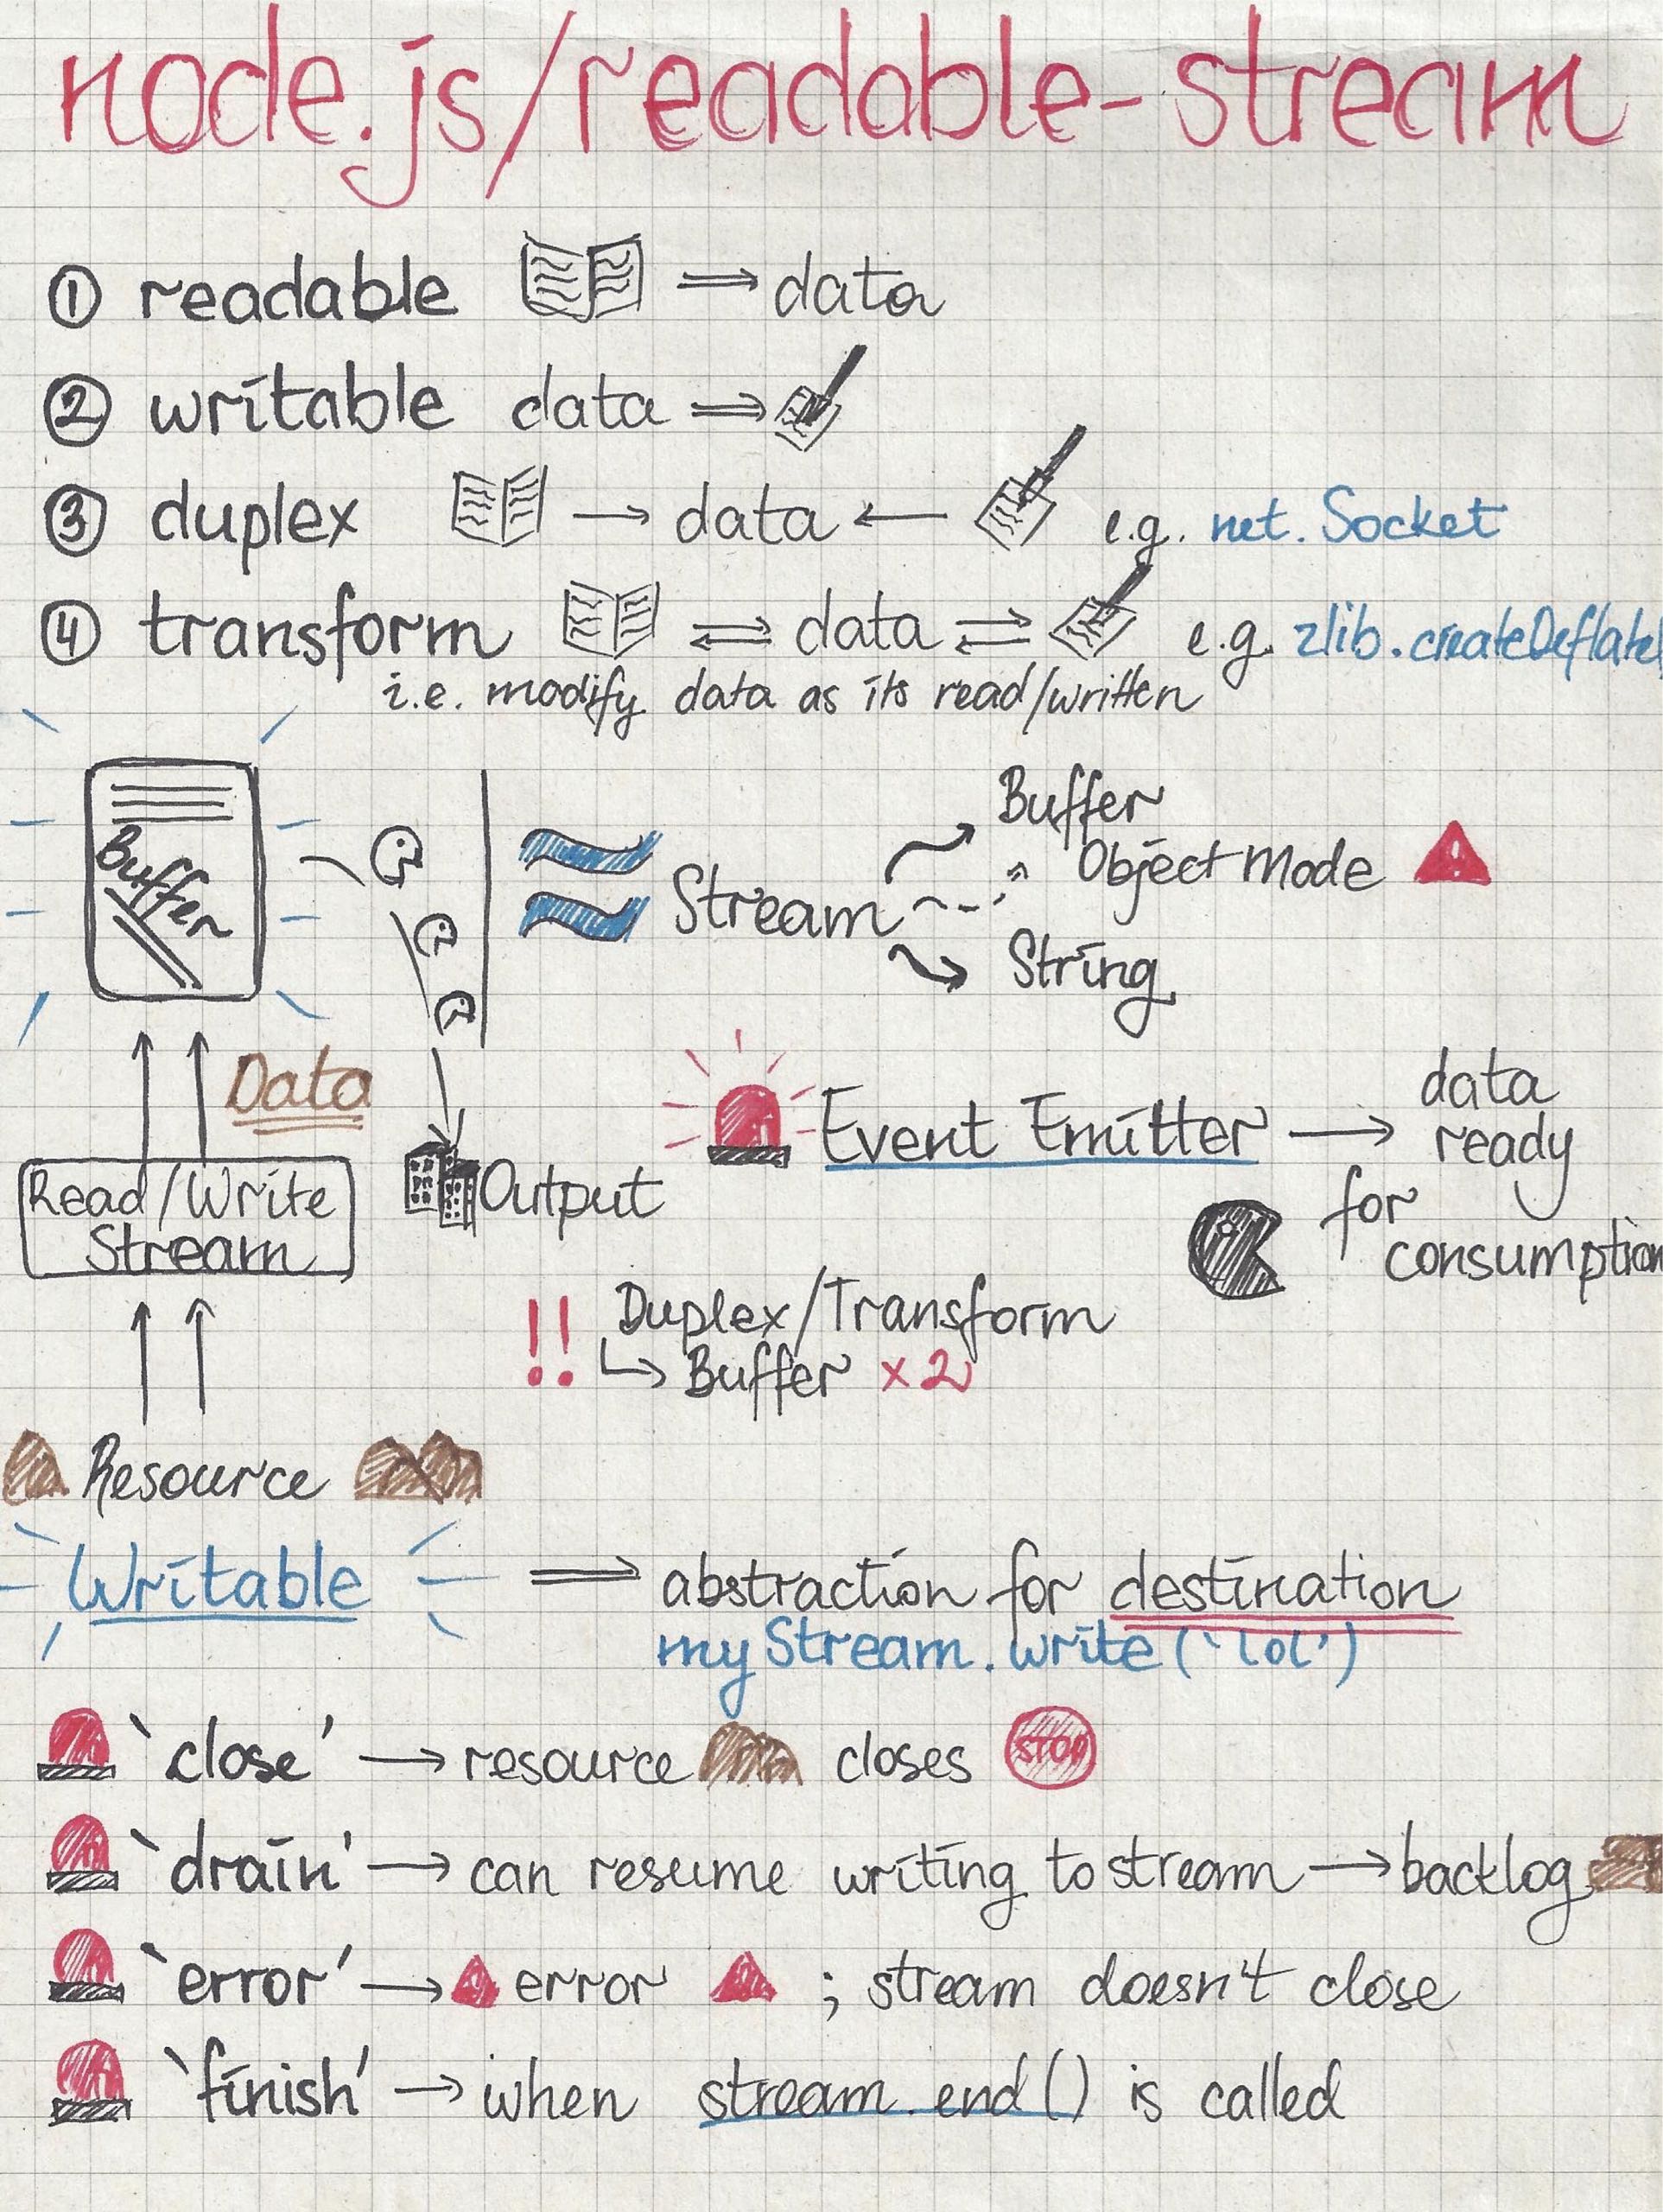 node.js/readable-stream
① readable ⇒ data
② writable data ⇒
③ duplex → data ← e.g. net.Socket
④ transform ⇌ data ⇌ e.g. zlib.createDeflate
i.e. modify data as its read/written
Buffer
Stream
Buffer
Object Mode
String
Data
Read/Write
Stream
Output
Resource
Event Emitter → data
ready
for
consumption
!! Duplex/Transform
↳ Buffer x2
Writable ⇒ abstraction for destination
myStream.write(`lol')
`close' → resource closes STOP
`drain' → can resume writing to stream → backlog
`error' → error ; stream doesn't close
`finish' → when stream.end() is called